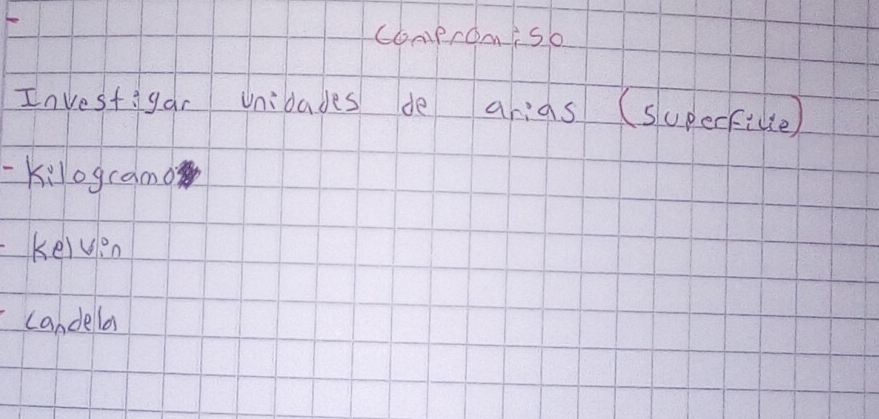 Compromiso
Investigar unidades de arias (superficie)
- Kilogramo
- Kelvin
- candela